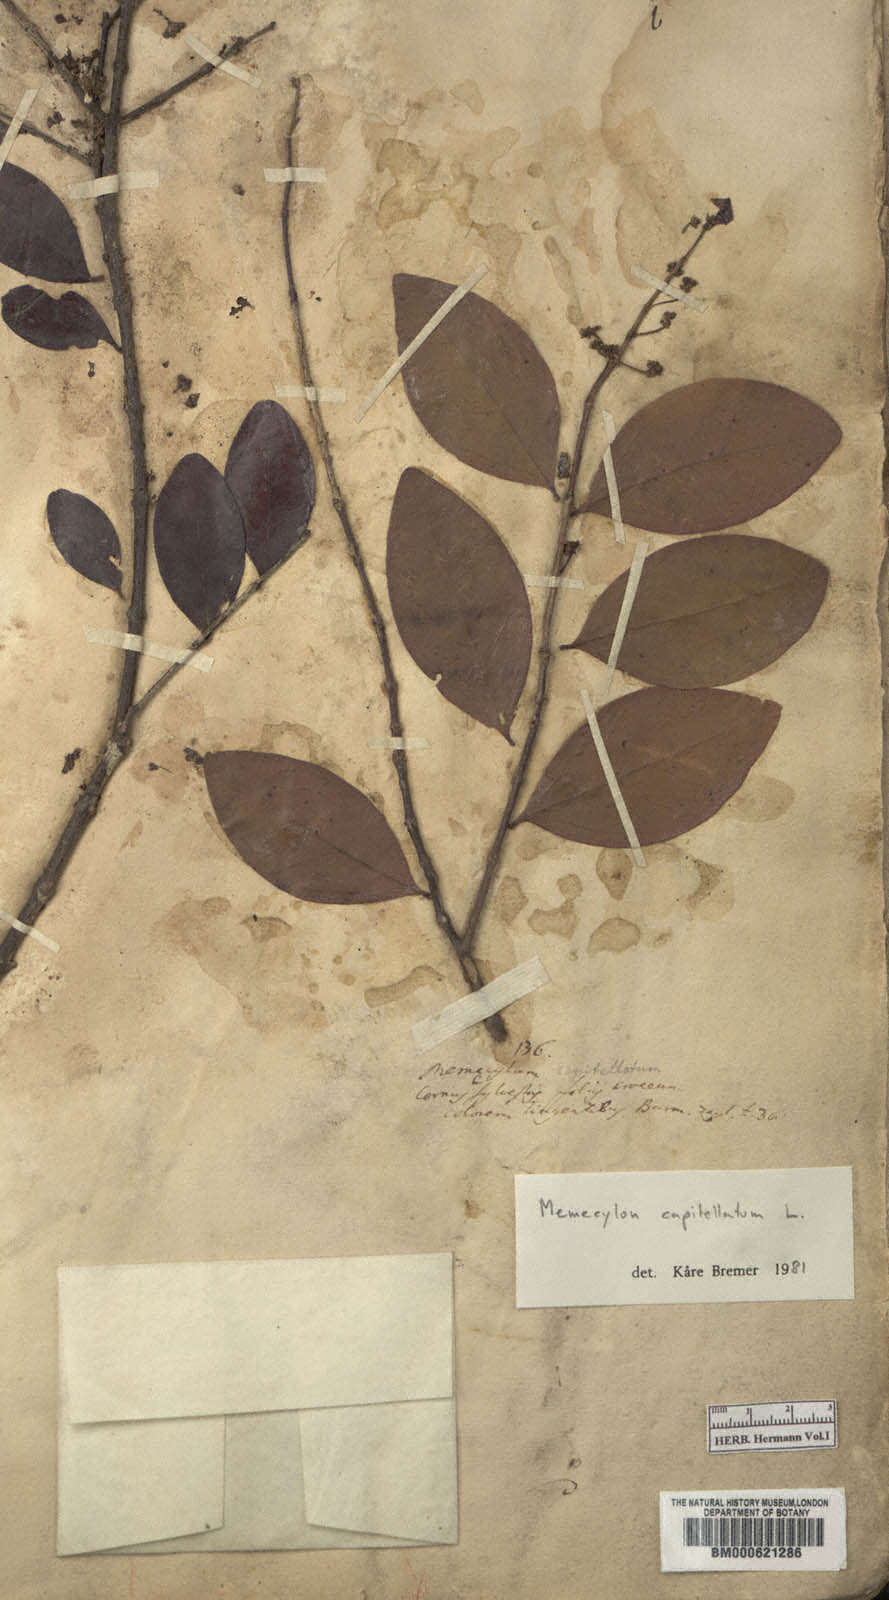 136.
Memecylum capitellatum
Cornus sylvestris foliis croceum
colorem tingentibus Burm. zeyl. t. 30.
Memecylon capitellatum L.
det. Kåre Bremer 1981
mm 1 2 3
HERB. Hermann Vol.I
THE NATURAL HISTORY MUSEUM, LONDON
DEPARTMENT OF BOTANY
BM000621286